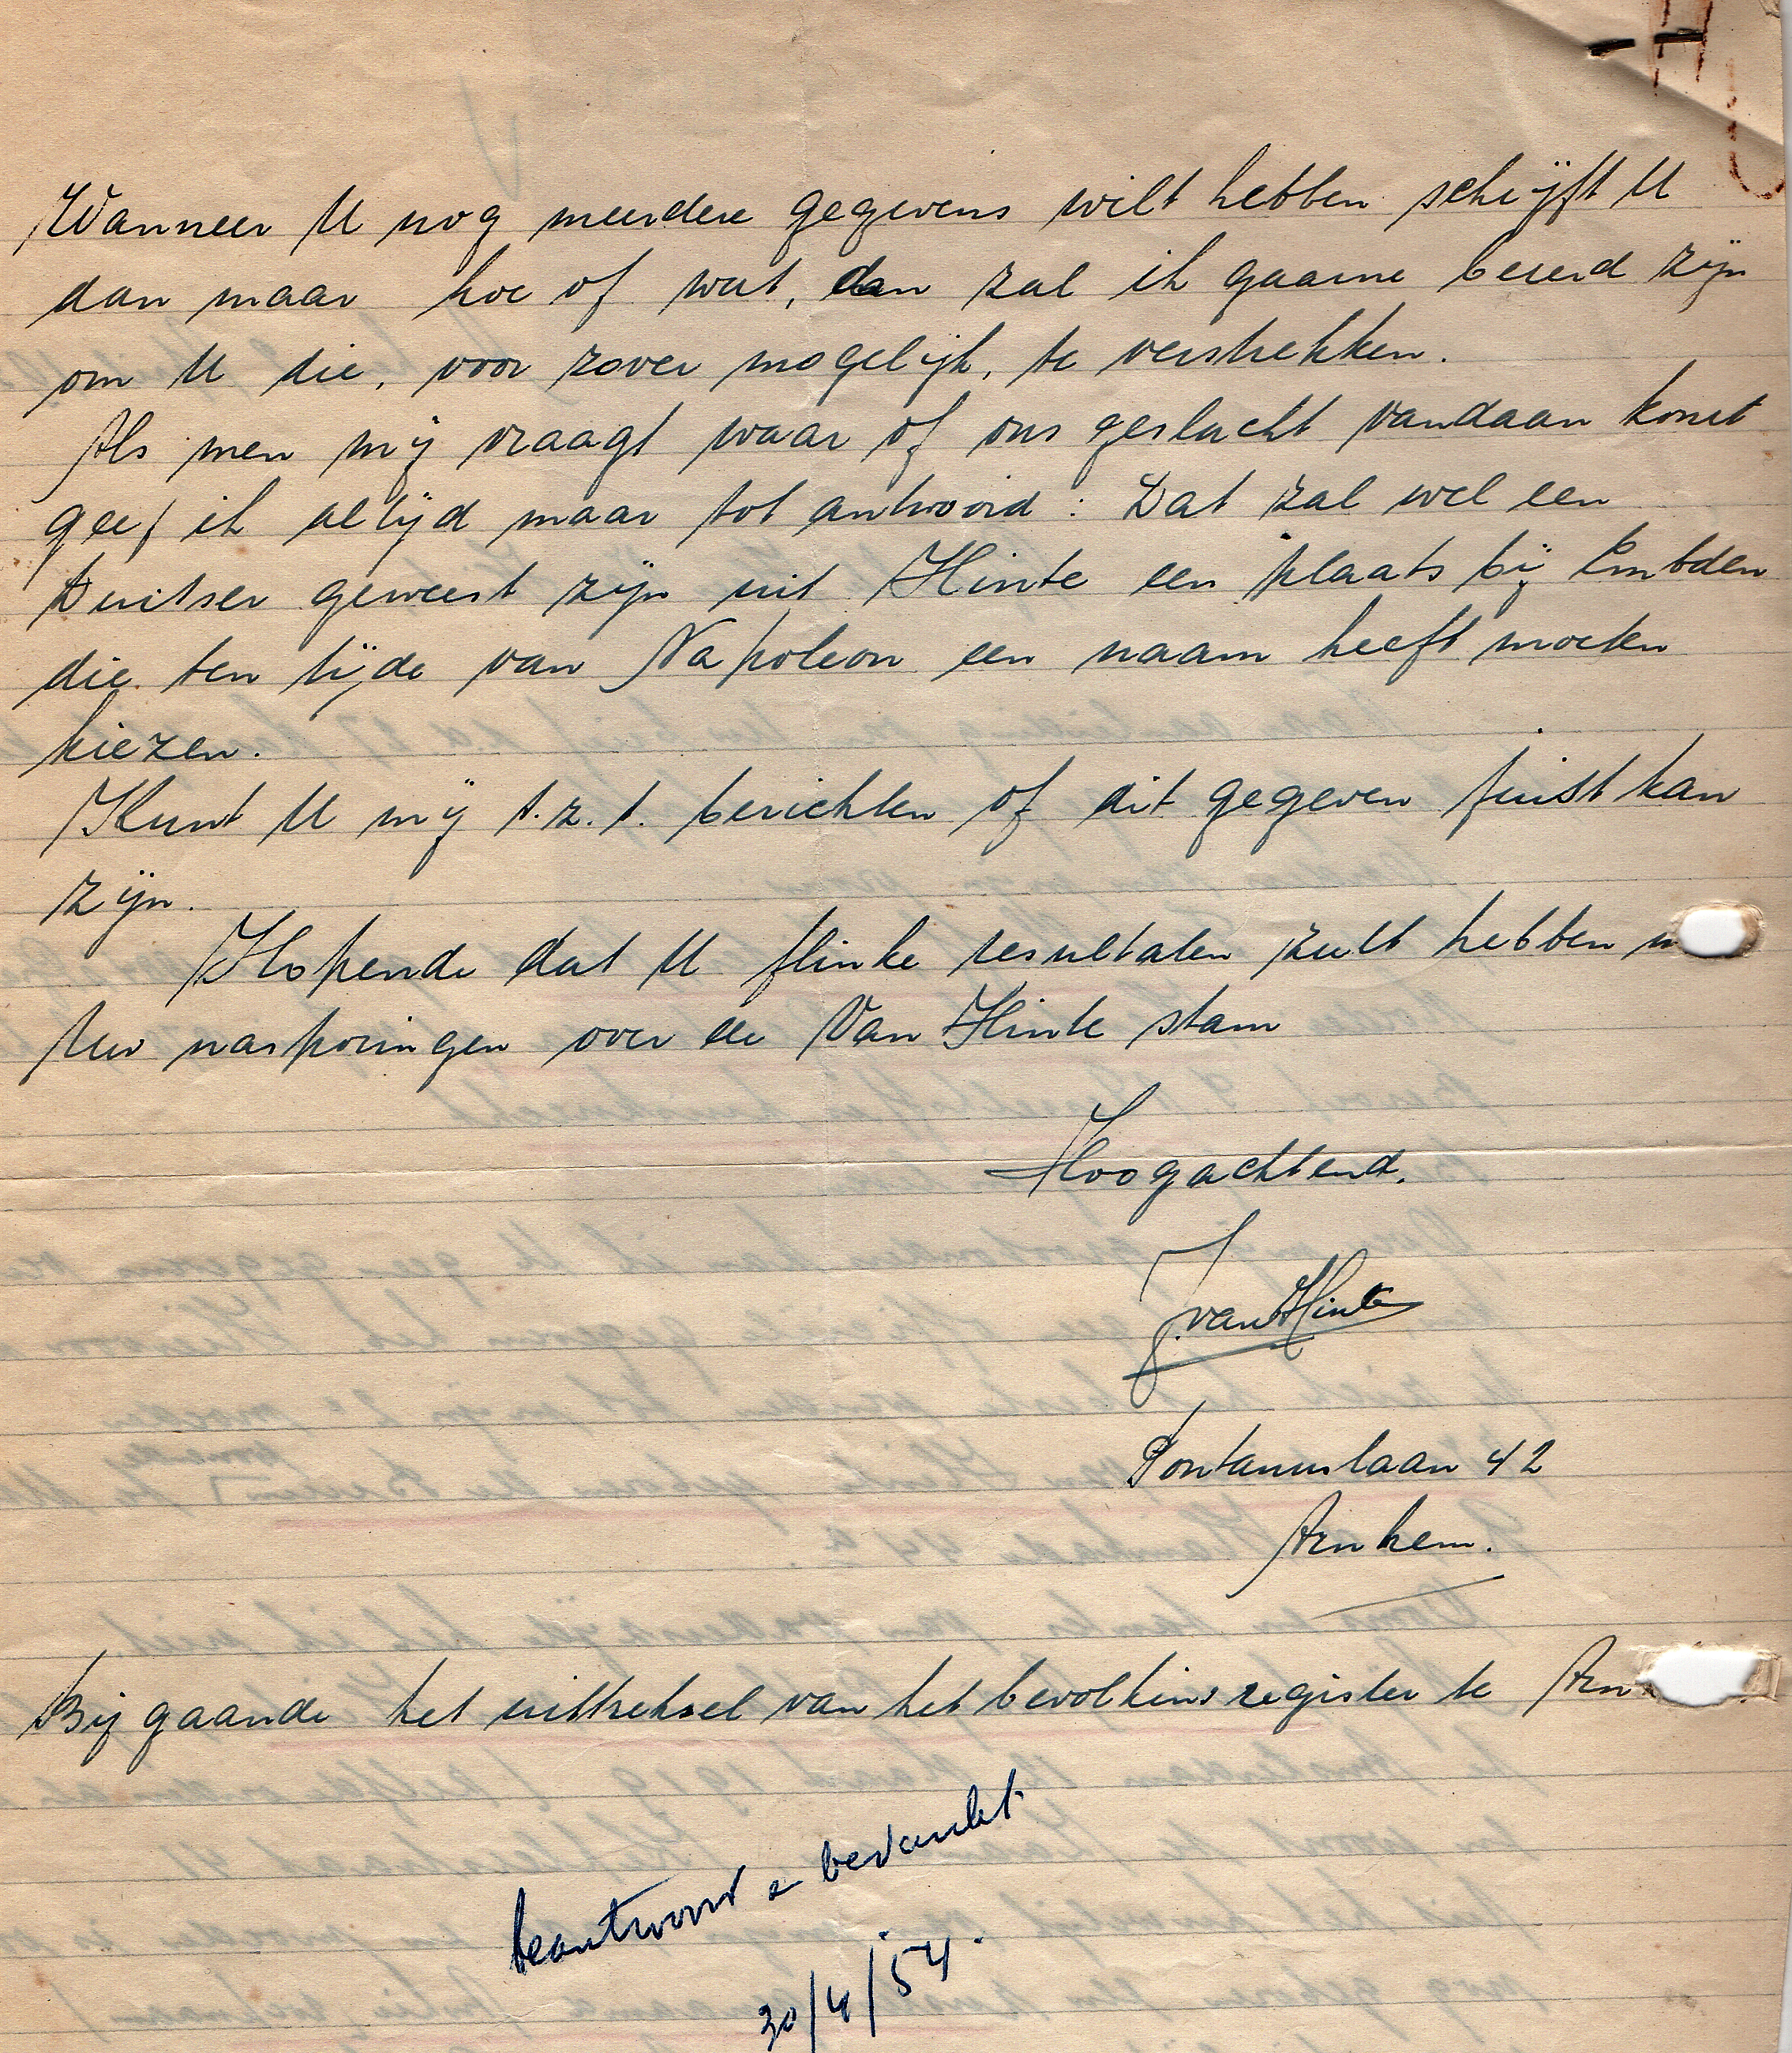 Wanneer U nog meerdere gegevens wilt hebben schrijft U
dan maar hoe of wat, dan zal ik gaarne bereid zijn
om U die, voor zover mogelijk, te verstrekken.
Als men mij vraagt waar of ons geslacht vandaan komt
geef ik altijd maar tot antwoord: Dat zal wel een
Duitser geweest zijn uit Hinte een plaats bij Embden
die ten tijde van Napoleon een naam heeft moeten
kiezen.
Kunt U mij t.z.t. berichten of dit gegeven juist kan
zijn.
Hopende dat U flinke resultaten zult hebben
Uw nasporingen over de Van Hinte stam
Hoogachtend.
J. van Hinte
Pontanuslaan 42
Arnhem.
Bijgaande het uittreksel van het bevolkins register te Arn
beantwoord en bedankt
30/4/'54.